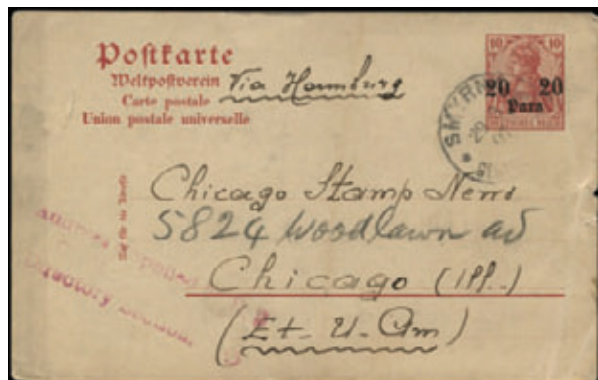 Postkarte
Weltpostverein
Carte postale
Union postale universelle
Via Hamburg
10 10
20 20
Para
SMYRNA
29
Chicago Stamp News
5824 Woodlawn av
Chicago (Ill.)
(Et. U. Am)
Directory Section.